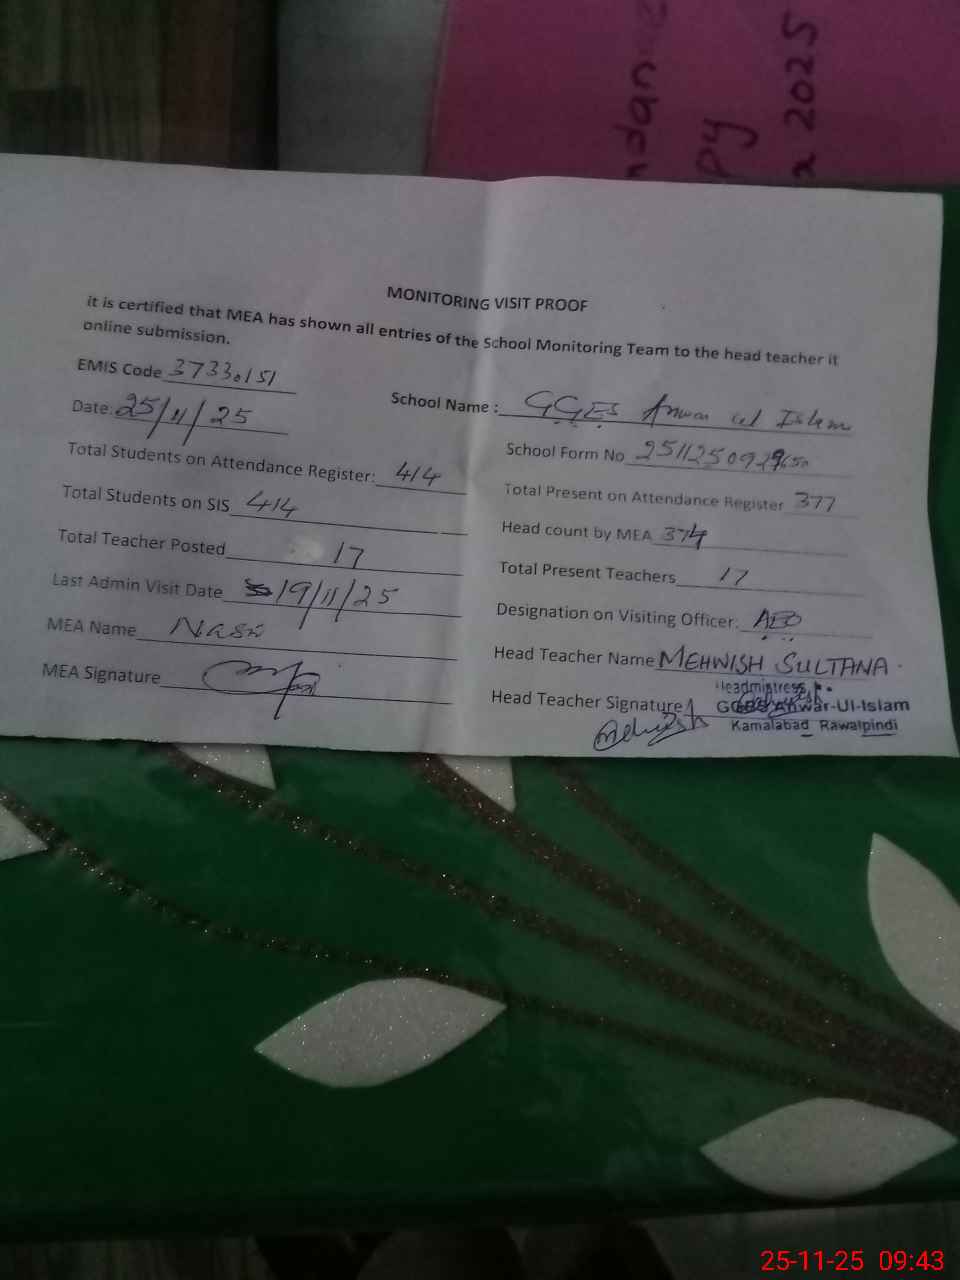 ndance
py
2025
MONITORING VISIT PROOF
it is certified that MEA has shown all entries of the School Monitoring Team to the head teacher it
online submission.
EMIS Code 37330151
School Name : GGES Anwar ul Islam
Date: 25/11/25
School Form No 2511250929
Total Students on Attendance Register: 414
Total Present on Attendance Register 377
Total Students on SIS 414
Head count by MEA 374
Total Teacher Posted 17
Total Present Teachers 17
Last Admin Visit Date 19/11/25
Designation on Visiting Officer: AEO
MEA Name Nasir
Head Teacher Name MEHWISH SULTANA
MEA Signature
Head Teacher Signature
Headmistress
GGES Anwar-Ul-Islam
Kamalabad Rawalpindi
25-11-25 09:43